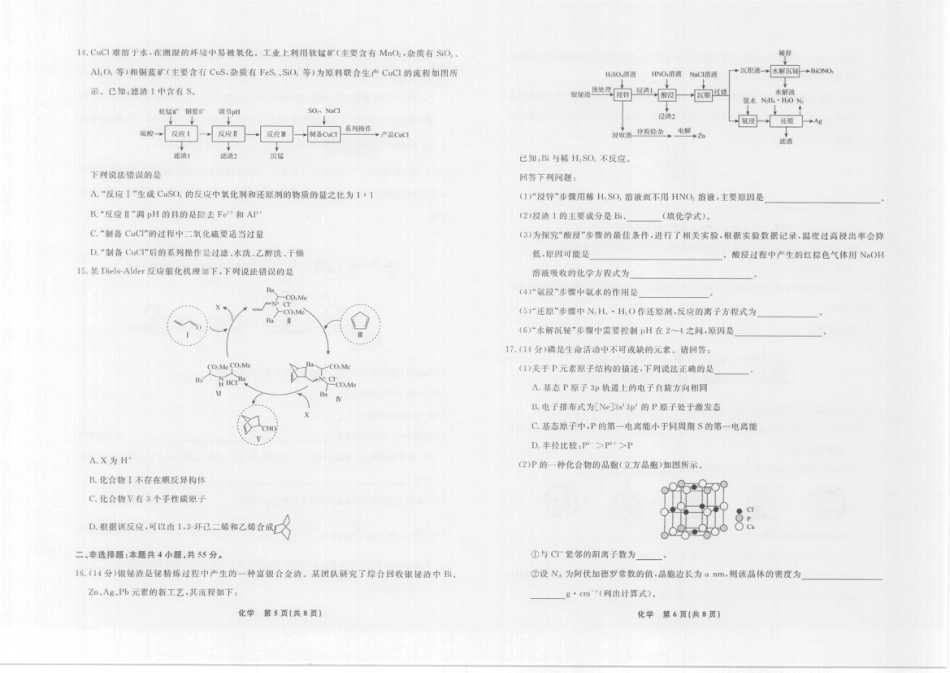 14. CuCl 难溶于水,在潮湿的环境中易被氧化。工业上利用软锰矿(主要含有 MnO₂,杂质有 SiO₂、
Al₂O₃ 等)和铜蓝矿(主要含有 CuS,杂质有 FeS₂、SiO₂ 等)为原料联合生产 CuCl 的流程如图所
示。已知:滤渣 1 中含有 S。
软锰矿 铜蓝矿 调节pH SO₂、NaCl
硫酸 反应Ⅰ 反应Ⅱ 反应Ⅲ 制备CuCl 系列操作 产品CuCl
滤渣1 滤渣2 沉锰
下列说法错误的是
A.“反应Ⅰ”生成 CuSO₄ 的反应中氧化剂和还原剂的物质的量之比为 1∶1
B.“反应Ⅱ”调 pH 的目的是除去 Fe³⁺ 和 Al³⁺
C.“制备 CuCl”的过程中二氧化硫要适当过量
D.“制备 CuCl”后的系列操作是过滤、水洗、乙醇洗、干燥
15. 某 Diels-Alder 反应催化机理如下,下列说法错误的是
Bu CO₂Me
N⁺ Cl⁻
CO₂Me
Bu Ⅱ
X
O
Ⅰ
Ⅲ
CO₂Me CO₂Me
Bu N H HCl Bu
Ⅵ
Bu CO₂Me
Cl⁻
CO₂Me
Bu Ⅳ
X
CHO
Ⅴ
A. X 为 H⁺
B. 化合物Ⅰ不存在顺反异构体
C. 化合物Ⅴ有 3 个手性碳原子
D. 根据该反应,可以由 1,3-环己二烯和乙烯合成
二、非选择题:本题共 4 小题,共 55 分。
16. (14 分)银铋渣是铋精炼过程中产生的一种富银合金渣。某团队研究了综合回收银铋渣中 Bi、
Zn、Ag、Pb 元素的新工艺,其流程如下:
化学 第 5 页(共 8 页)
稀释
H₂SO₄溶液 HNO₃溶液 NaCl溶液 沉银液 水解沉铋 BiONO₃
银铋渣 预处理 浸锌 浸渣1 酸浸 沉银 过滤 水解液
浸渣2 氨水 N₂H₄·H₂O N₂
氨浸 还原 Ag
浸取液 锌粉除杂 电解 Zn 滤液
已知:Bi 与稀 H₂SO₄ 不反应。
回答下列问题:
(1)“浸锌”步骤用稀 H₂SO₄ 溶液而不用 HNO₃ 溶液,主要原因是________。
(2)浸渣 1 的主要成分是 Bi、________(填化学式)。
(3)为探究“酸浸”步骤的最佳条件,进行了相关实验,根据实验数据记录,温度过高浸出率会降
低,原因可能是________。酸浸过程中产生的红棕色气体用 NaOH
溶液吸收的化学方程式为________。
(4)“氨浸”步骤中氨水的作用是________。
(5)“还原”步骤中 N₂H₄·H₂O 作还原剂,反应的离子方程式为________。
(6)“水解沉铋”步骤中需要控制 pH 在 2~4 之间,原因是________。
17. (14 分)磷是生命活动中不可或缺的元素。请回答:
(1)关于 P 元素原子结构的描述,下列说法正确的是________。
A. 基态 P 原子 3p 轨道上的电子自旋方向相同
B. 电子排布式为[Ne]3s¹3p⁴ 的 P 原子处于激发态
C. 基态原子中,P 的第一电离能小于同周期 S 的第一电离能
D. 半径比较:P³⁻>P³⁺>P
(2)P 的一种化合物的晶胞(立方晶胞)如图所示。
Cl
P
Ca
①与 Cl⁻ 紧邻的阳离子数为________。
②设 Nₐ 为阿伏加德罗常数的值,晶胞边长为 a nm,则该晶体的密度为________
________g·cm⁻³(列出计算式)。
化学 第 6 页(共 8 页)